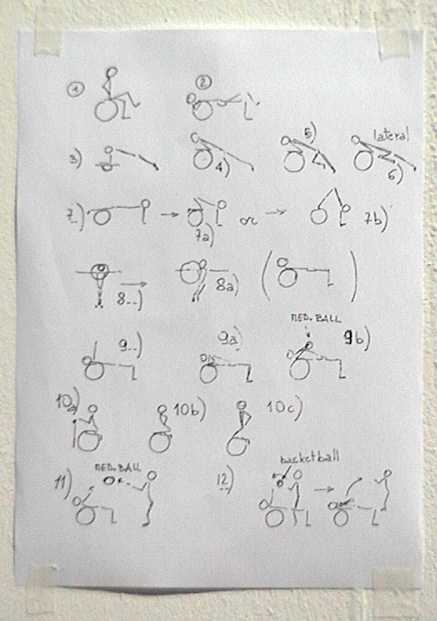 1 2
3) 4) 5) lateral 6)
7.) 7a) or 7b)
8..) 8a)
9..) 9a) MED. BALL 9b)
10a) 10b) 10c)
11) MED. BALL 12) basketball